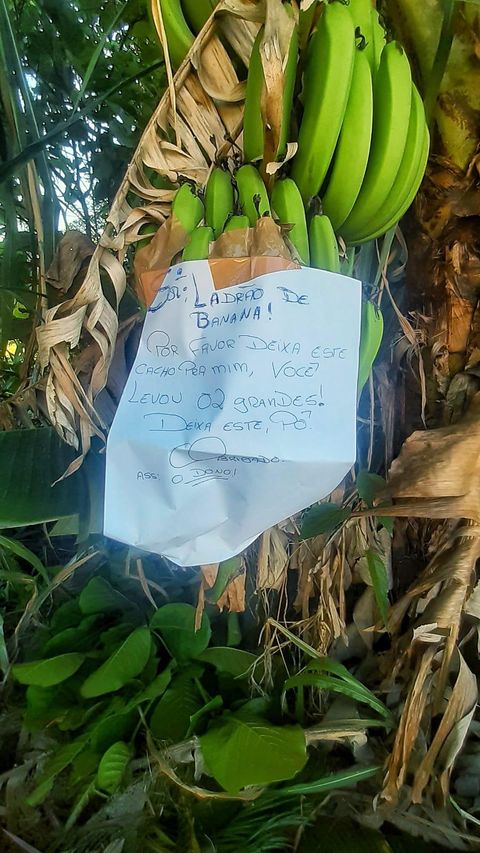 Sr: LADRÃO DE
BANANA!
POR FAVOR DEIXA ESTE
CACHO PRA MIM, VOCÊ
LEVOU 02 GRANDES!
DEIXA ESTE, PÔ!
OBRIGADO.
ASS: O DONO!